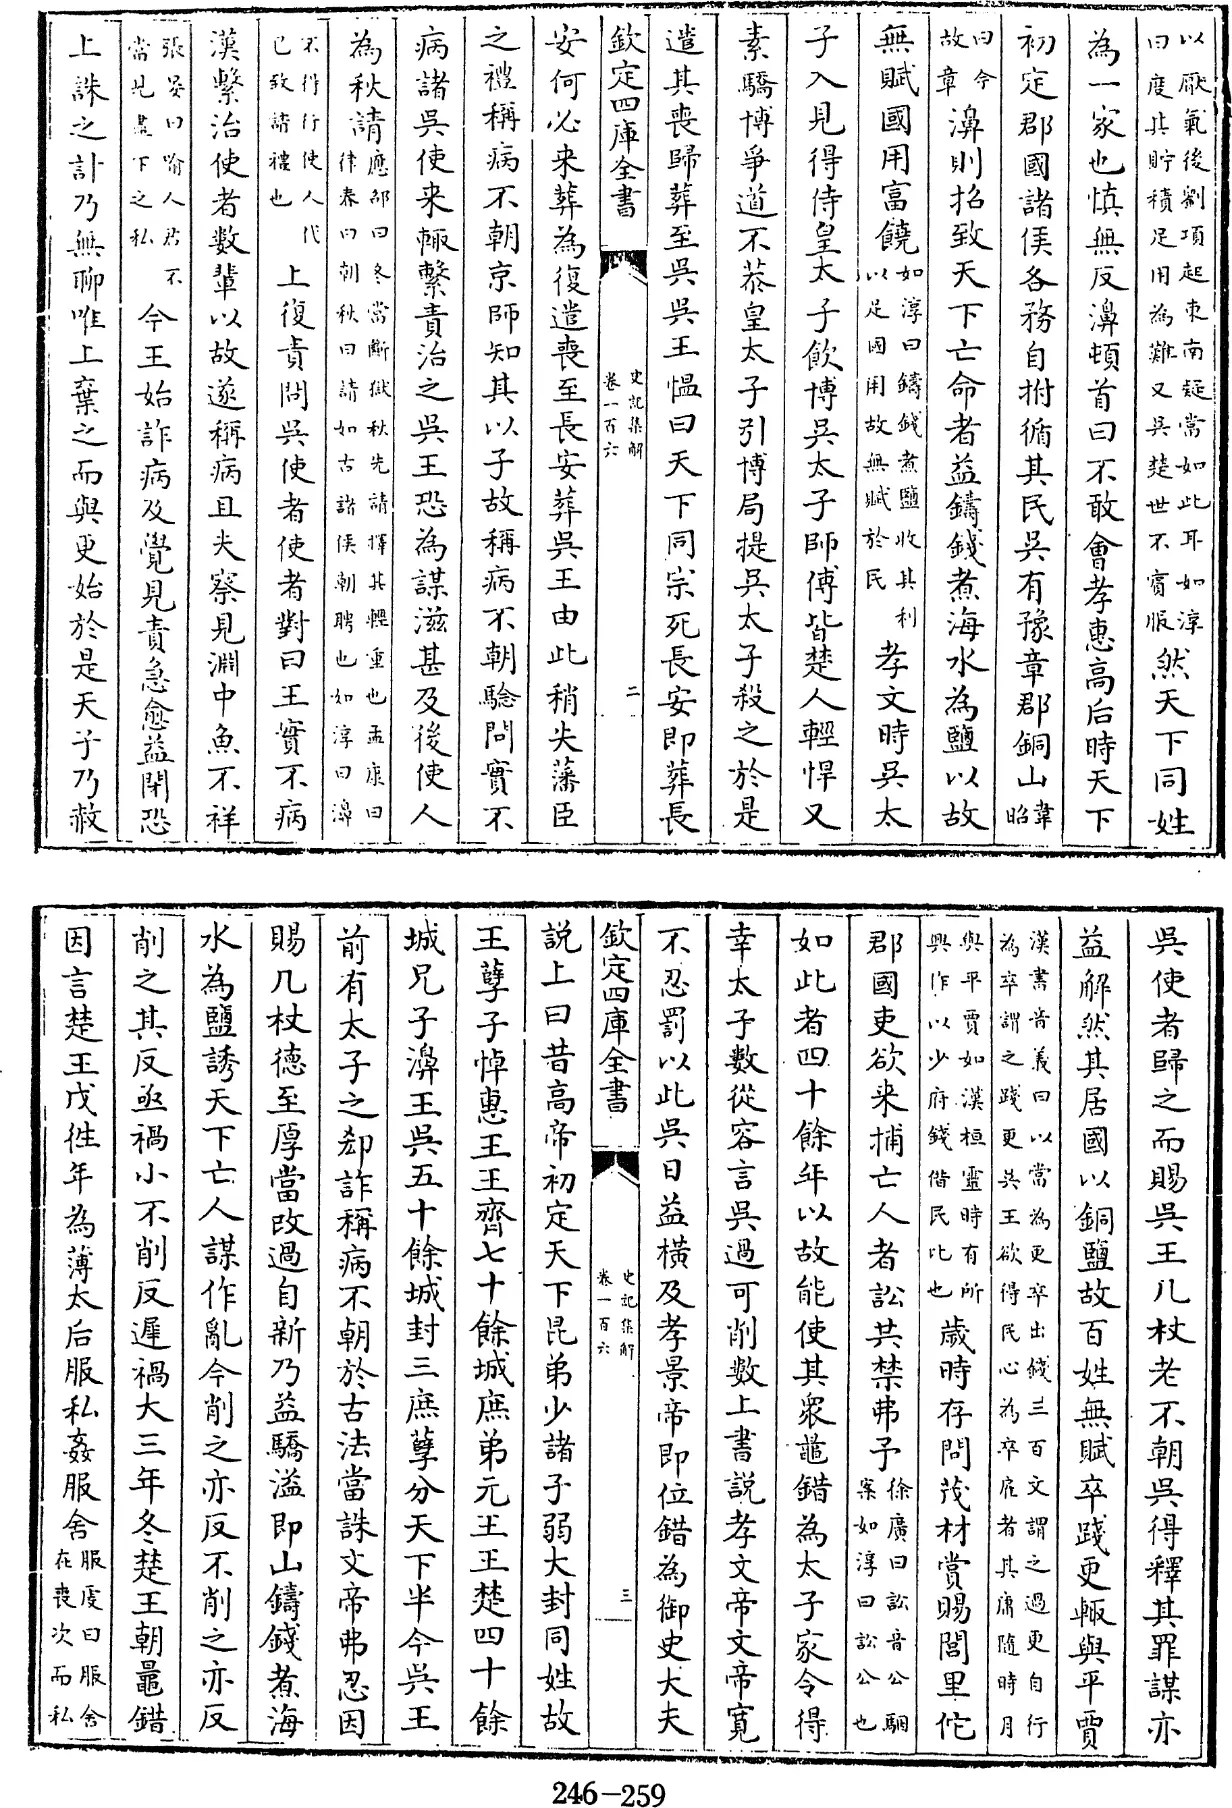 以厭氣後劉項起東南疑當如此耳如淳曰度其貯積足用為難又吳楚世不賓服然天下同姓
為一家也慎無反濞頓首曰不敢會孝惠高后時天下
初定郡國諸侯各務自拊循其民吳有豫章郡銅山韋昭
曰今故章濞則招致天下亡命者益鑄錢煮海水為鹽以故
無賦國用富饒如淳曰鑄錢煮鹽收其利以足國用故無賦於民孝文時吳太
子入見得侍皇太子飲博吳太子師傅皆楚人輕悍又
素驕博爭道不恭皇太子引博局提吳太子殺之於是
遣其喪歸葬至吳吳王慍曰天下同宗死長安即葬長
欽定四庫全書 史記集解 卷一百六 二
安何必来葬為復遣喪至長安葬吳王由此稍失藩臣
之禮稱病不朝京師知其以子故稱病不朝驗問實不
病諸吳使来輙繫責治之吳王恐為謀滋甚及後使人
為秋請應劭曰冬當斷獄秋先請擇其輕重也孟康曰律春曰朝秋曰請如古諸侯朝聘也如淳曰濞
不得行使人代已致請禮也上復責問吳使者使者對曰王實不病
漢繫治使者數輩以故遂稱病且夫察見淵中魚不祥
張晏曰喻人君不當見盡下之私今王始詐病及覺見責急愈益閉恐
上誅之計乃無聊唯上棄之而與更始於是天子乃赦
吳使者歸之而賜吳王几杖老不朝吳得釋其罪謀亦
益解然其居國以銅鹽故百姓無賦卒踐更輙與平賈
漢書音義曰以當為更卒出錢三百文謂之過更自行為卒謂之踐更吳王欲得民心為卒雇者其庸隨時月
與平賈如漢桓靈時有所興作以少府錢借民比也歲時存問茂材賞賜閭里佗
郡國吏欲来捕亡人者訟共禁弗予徐廣曰訟音公駰案如淳曰訟公也
如此者四十餘年以故能使其衆鼂錯為太子家令得
幸太子數從容言吳過可削數上書說孝文帝文帝寛
不忍罰以此吳日益橫及孝景帝即位錯為御史大夫
欽定四庫全書 史記集解 卷一百六 三
說上曰昔高帝初定天下昆弟少諸子弱大封同姓故
王孽子悼惠王王齊七十餘城庶弟元王王楚四十餘
城兄子濞王吳五十餘城封三庶孽分天下半今吳王
前有太子之郄詐稱病不朝於古法當誅文帝弗忍因
賜几杖德至厚當改過自新乃益驕溢即山鑄錢煮海
水為鹽誘天下亡人謀作亂今削之亦反不削之亦反
削之其反亟禍小不削反遲禍大三年冬楚王朝鼂錯
因言楚王戊徃年為薄太后服私姦服舍服虔曰服舍在喪次而私
246–259